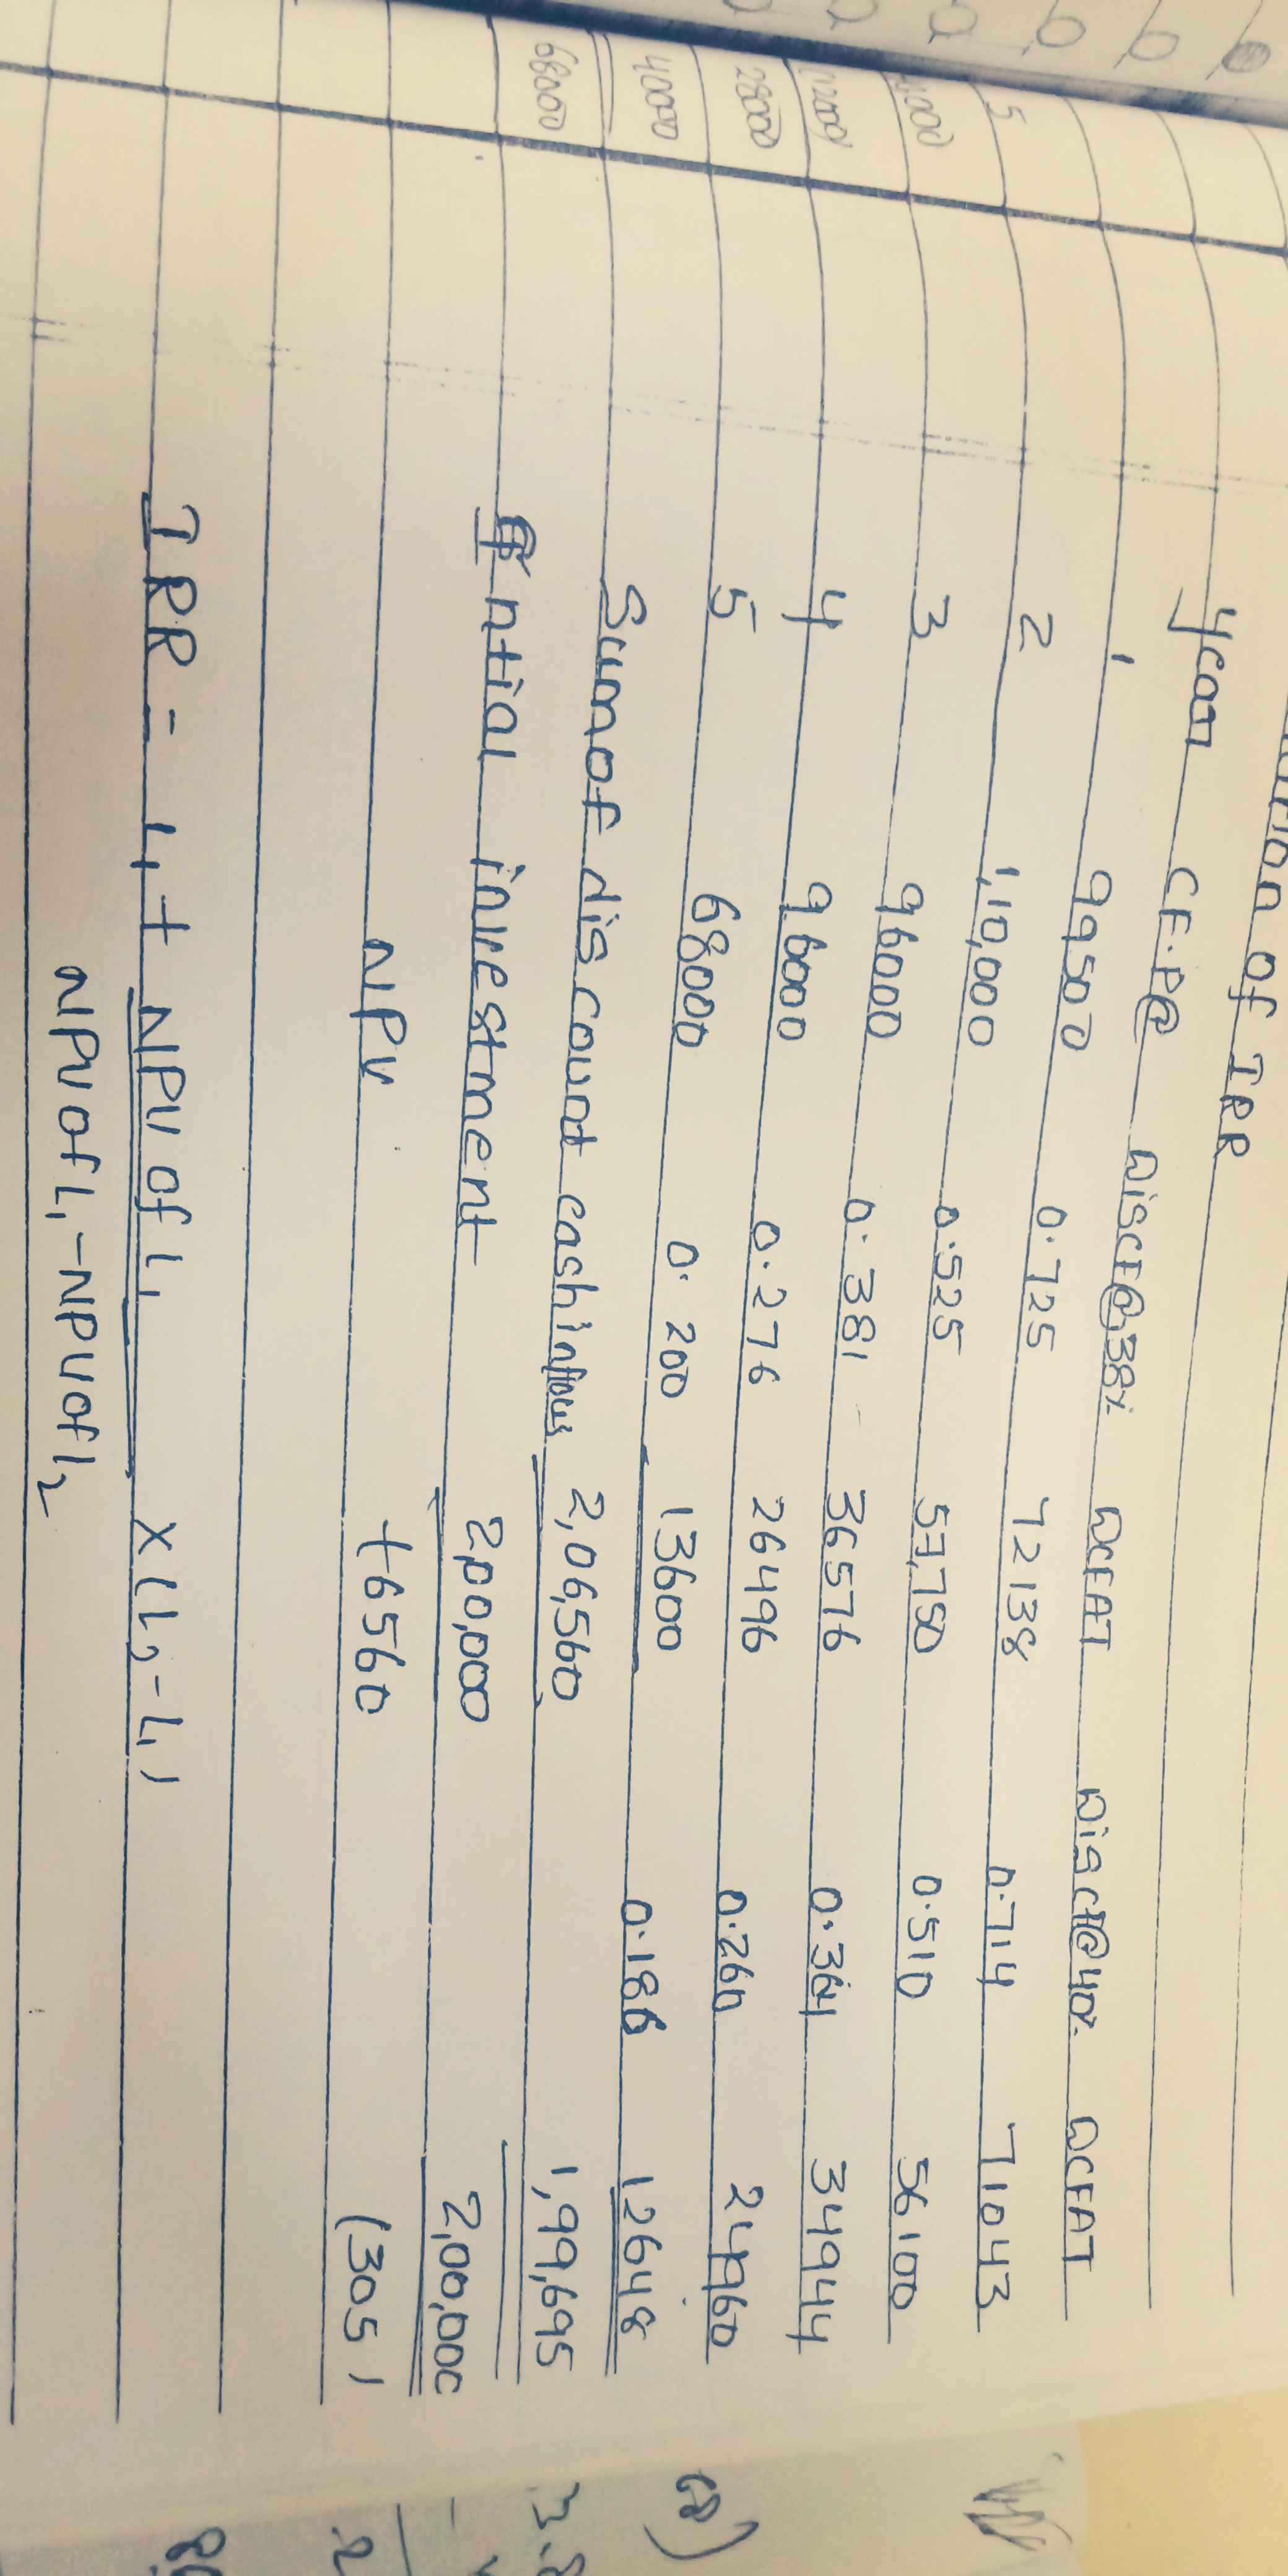 of IRR
Year CF.P@ DISCF@38% DCFAT Discf@40% DCFAT
1 99500 0.725 72138 0.714 71043
2 1,10,000 0.525 57,750 0.510 56100
3 96000 0.381 36576 0.364 34944
4 96000 0.276 26496 0.260 24960
5 68000 0.200 13600 0.186 12648
Sum of discount cash inflows 2,06,560 1,99,695
intial investment 2,00,000 2,00,000
NPV +6560 (305)
IRR = L1 + NPV of L1 X (L2 - L1)
NPV of L1 - NPV of L2
5
12000
28000
40000
68000